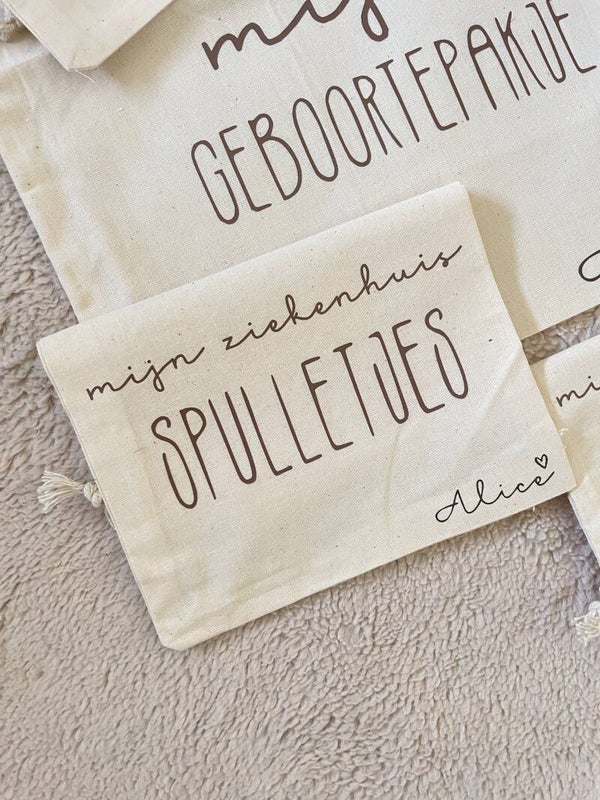 GEBOORTEPAKJE
mijn ziekenhuis
SPULLETJES
Alice